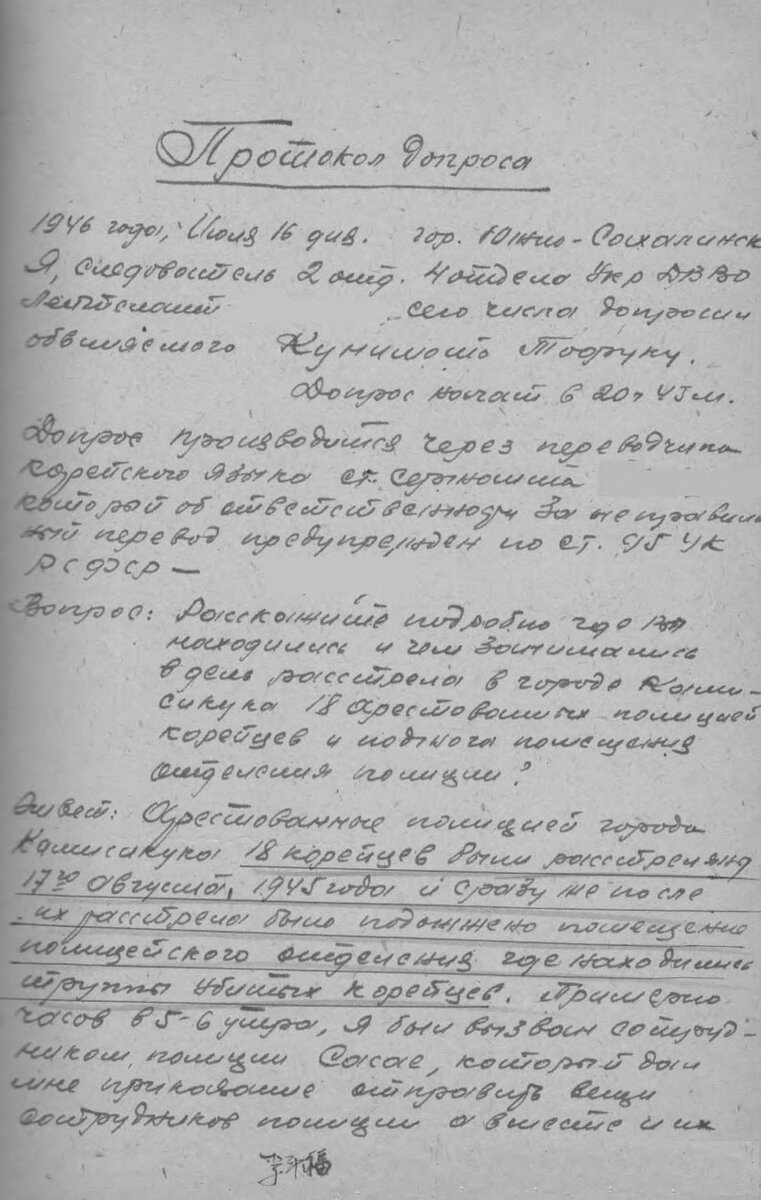 Протокол допроса
1946 года, Июля 16 дня. гор. Южно-Сахалинск
Я, следователь 2 отд. 4 отдела Укр ДВВО
Лейтенант сего числа допросил
обвиняемого Кунимото Тофуку.
Допрос начат в 20ч 45м.
Допрос производится через переводчика
корейского языка ст. сержанта
который об ответственности за неправиль
ный перевод предупрежден по ст. 95 УК
РСФСР —
Вопрос: Расскажите подробно где вы
находились и чем занимались
в день расстрела в городе Ками-
сикука 18 арестованных полицией
корейцев и поджога помещения
отделения полиции?
Ответ: Арестованные полицией города
Камисикука 18 корейцев были расстреляны
17го августа, 1945 года и сразу же после
их расстрела было подожжено помещение
полицейского отделения где находились
трупы убитых корейцев. Примерно
часов в 5-6 утра, я был вызван сотруд-
ником полиции Сасае, который дал
мне приказание отправить вещи
сотрудников полиции а вместе и их
福